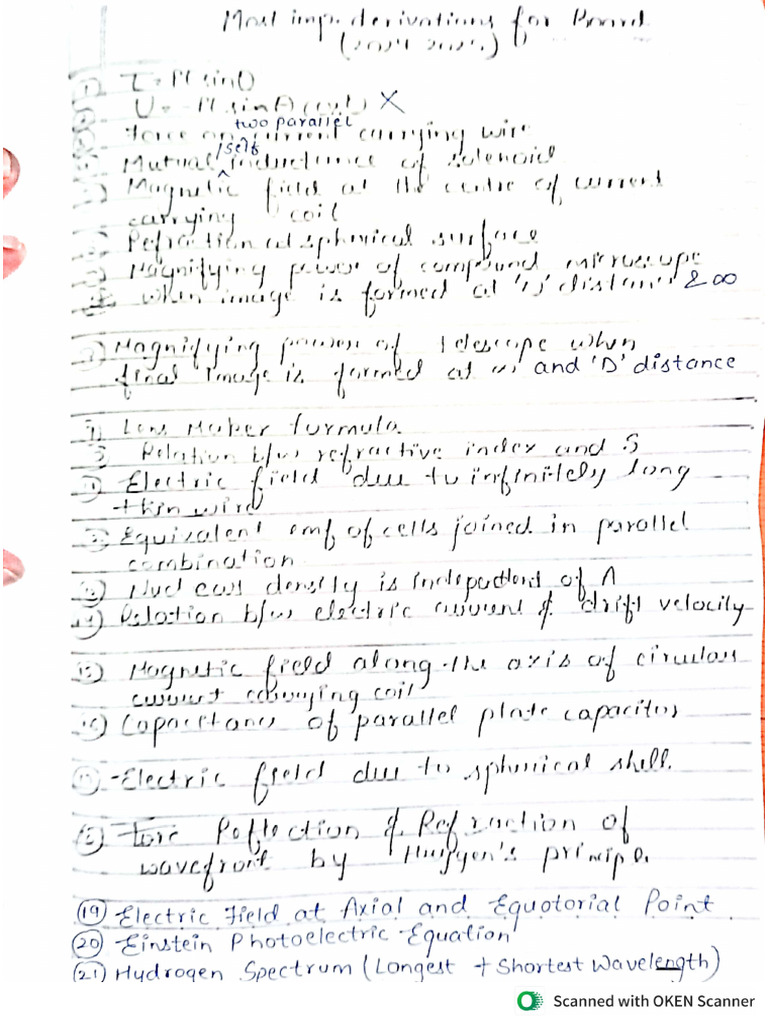 Most imp. derivations for Board
(2024-2025)
① τ = PE sinθ
U = -PE sinθ (cut) ×
two parallel
Force on current carrying wire
/self
Mutual ^ inductance of solenoid
Magnetic field at the centre of current
carrying coil
Refraction at spherical surface
Magnifying power of compound microscope
when image is formed at 'D' distance & ∞
Magnifying power of telescope when
final image is formed at ∞ and 'D' distance
Lens Maker formula
Relation b/w refractive index and δ
Electric field due to infinitely long
thin wire
Equivalent emf of cells joined in parallel
combination
density is independent of A
14) Relation b/w electric current & drift velocity
15) Magnetic field along the axis of circular
current carrying coil
16) Capacitance of parallel plate capacitor
Electric field due to spherical shell.
Reflection & Refraction of
wavefront by Huygen's
(19) Electric Field at Axial and Equotorial Point
(20) Einstein Photoelectric Equation
(21) Hydrogen Spectrum (Longest + Shortest Wavelength)
Scanned with OKEN Scanner